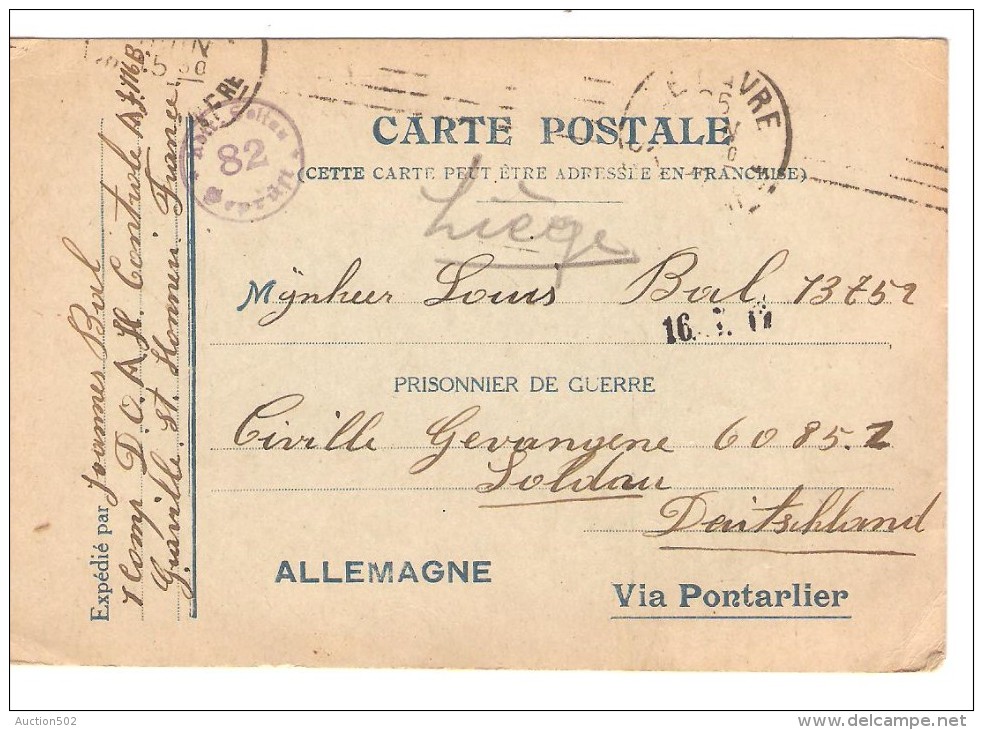 CARTE POSTALE
(CETTE CARTE PEUT ÊTRE ADRESSÉE EN FRANCHISE)
Liège
Mÿnheer Louis Bal. 13752
16.
PRISONNIER DE GUERRE
Civille Gevangene 6085.2
Soldau
Deutschland
ALLEMAGNE
Via Pontarlier
Expédié par Joannes Bal
1 Comp D.O.A.H. Controle A.F.M.B.
Graville St Honneri France
82
Geprüft
LE HAVRE
Auction502
www.delcampe.net